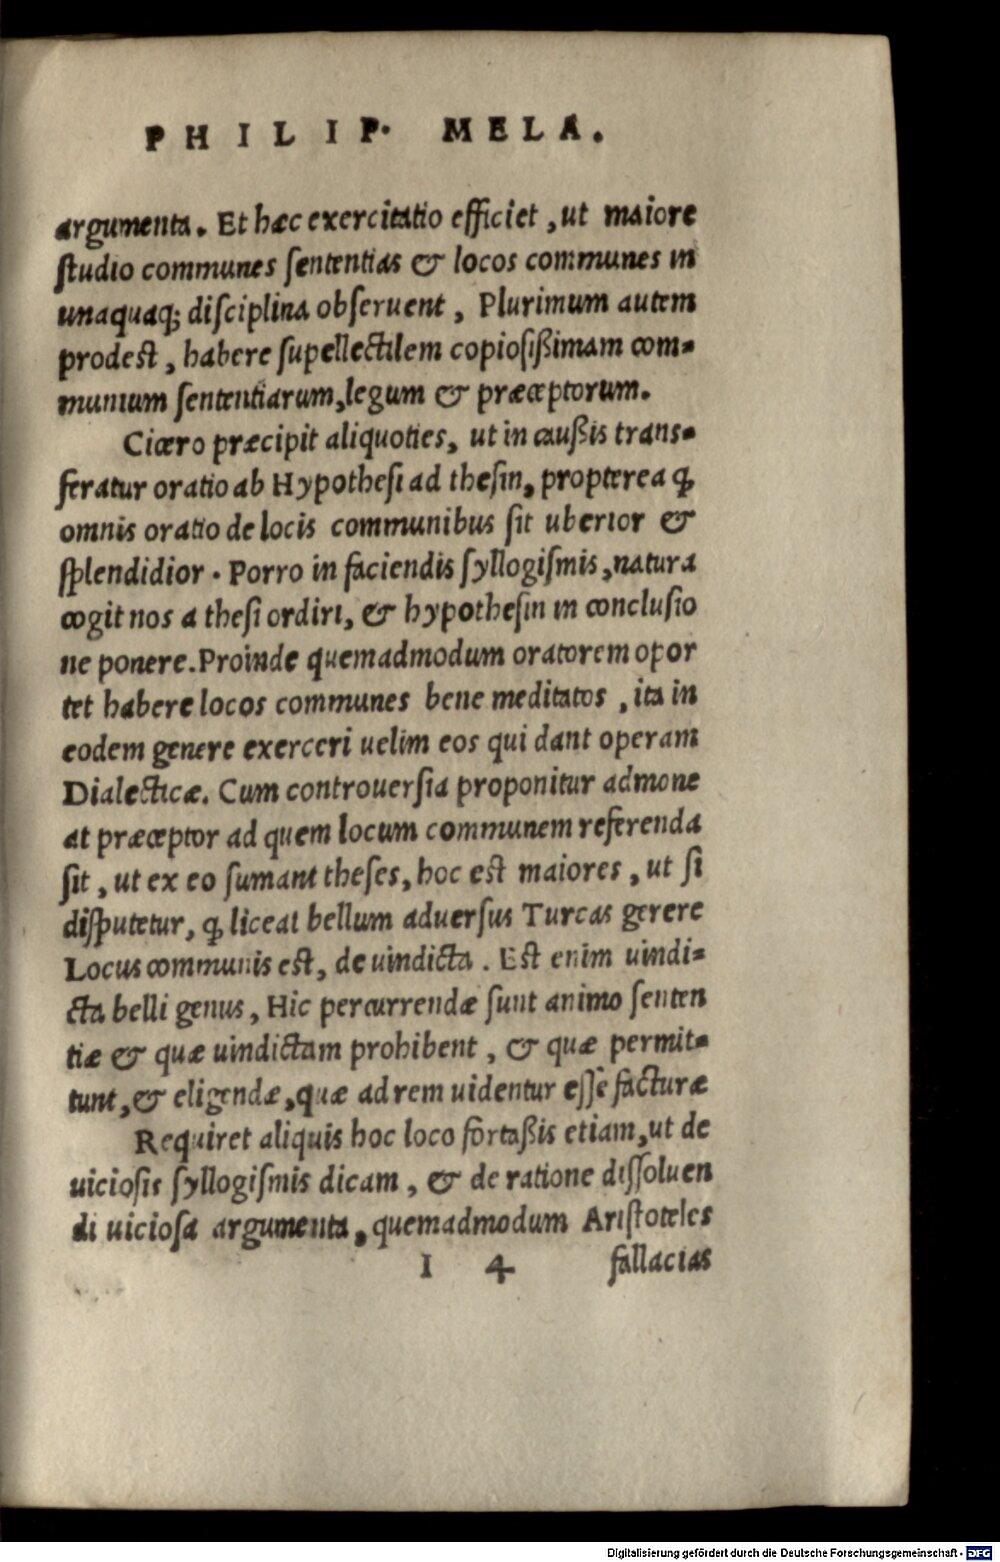 PHILIP. MELA.
argumenta. Et hæc exercitatio efficiet, ut maiore
ſtudio communes ſententias & locos communes in
unaquaq; diſciplina obſeruent, Plurimum autem
prodeſt, habere ſupellectilem copioſißimam com-
munium ſententiarum, legum & præceptorum.
Cicero præcipit aliquoties, ut in caußis trans-
feratur oratio ab Hypotheſi ad theſin, propterea ꝙ
omnis oratio de locis communibus ſit uberior &
ſplendidior. Porro in faciendis ſyllogiſmis, natura
cogit nos a theſi ordiri, & hypotheſin in concluſio
ne ponere. Proinde quemadmodum oratorem opor
tet habere locos communes bene meditatos, ita in
eodem genere exerceri uelim eos qui dant operam
Dialecticæ. Cum controuerſia proponitur admone
at præceptor ad quem locum communem referenda
ſit, ut ex eo ſumant theſes, hoc eſt maiores, ut ſi
diſputetur, ꝙ liceat bellum aduerſus Turcas gerere
Locus communis eſt, de uindicta. Eſt enim uindi-
cta belli genus, Hic percurrendæ ſunt animo ſenten
tiæ & quæ uindictam prohibent, & quæ permit-
tunt, & eligendæ, quæ ad rem uidentur eſſe facturæ
Requiret aliquis hoc loco fortaßis etiam, ut de
uicioſis ſyllogiſmis dicam, & de ratione diſſoluen
di uicioſa argumenta, quemadmodum Ariſtoteles
I 4 fallacias
Digitalisierung gefördert durch die Deutsche Forschungsgemeinschaft - DFG